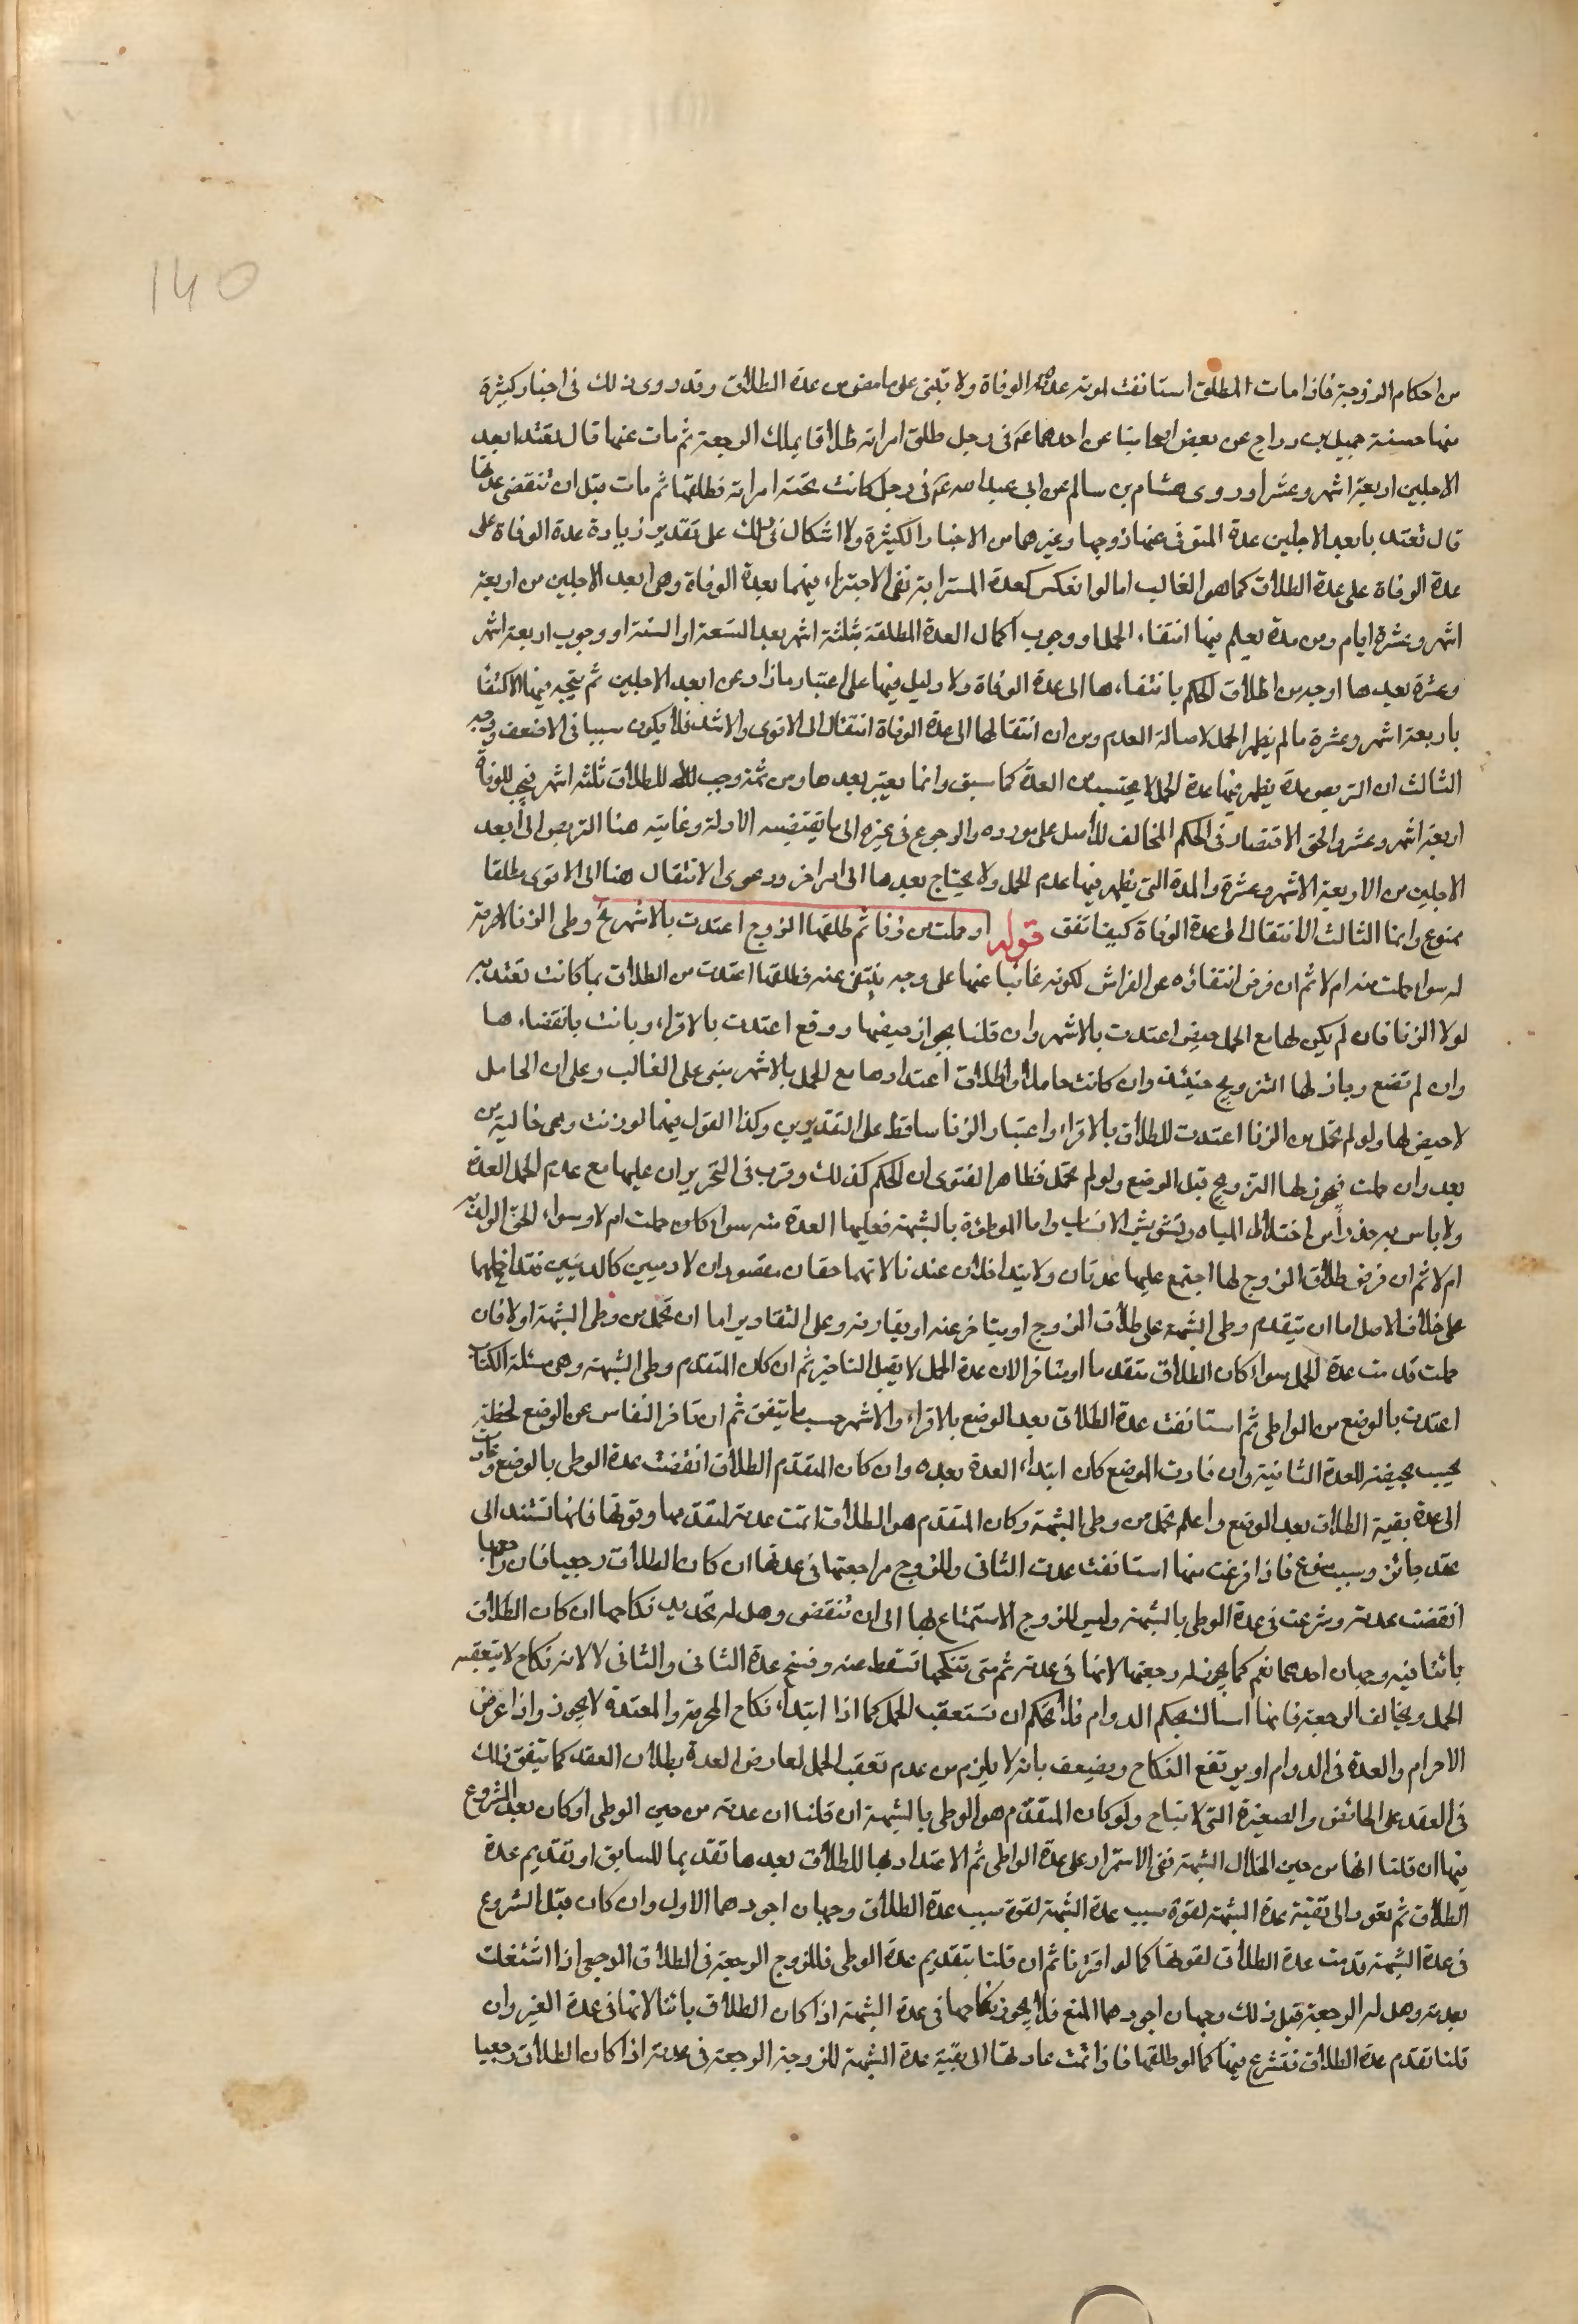 140
من احكام الزوجية فاذا مات المطلق استانفت لموته عدة الوفاة ولا تبنى على ما مضى من عدة الطلاق وقد روى ذلك فى اخبار كثيرة
منها حسنة جميل بن دراج عن بعض اصحابنا عن احدهما عم فى رجل طلق امراته طلاقا يملك الرجعة ثم مات عنها قال تعتد بابعد
الاجلين اربعة اشهر وعشرا وروى هشام بن سالم عن ابى عبد الله عم فى رجل كانت تحته امراته فطلقها ثم مات قبل ان تنقضى عدتها
قال تعتد بابعد الاجلين عدة المتوفى عنها زوجها وغيرهما من الاخبار الكثيرة ولا اشكال فى ذلك على تقدير زيادة عدة الوفاة على
عدة الوفاة على عدة الطلاق كما هو الغالب اما لو انعكس كعدة المسترابة ففى الاجتزاء فيهما بعدة الوفاة وهى ابعد الاجلين من اربعة
اشهر وعشرة ايام ومن مدة يعلم فيها انتفاء الحمل او وجوب اكمال العدة المطلقة بثلثة اشهر بعد التسعة او السنة او وجوب اربعة اشهر
وعشرة بعدها اوجه من اطلاق الحكم بانتفاءها الى عدة الوفاة ولا دليل فيها على اعتبار ما زاد عن ابعد الاجلين ثم يتجه فيها الاكتفا
باربعة اشهر وعشرة ما لم يظهر الحمل لاصالة العدم ومن ان انتقالها الى عدة الوفاة انتقال الى الاقوى والاشد فلا يكون سببا فى الاضعف ووجه
الثالث ان التربص مدة يظهر فيها عدة الحمل لا يحتسب من العدة كما سبق وانما يعتبر بعدها ومن ثمة وجب للطلاق ثلثه اشهر فيجب للوفاة
اربعة اشهر وعشر والحق الاقتصار فى الحكم المخالف للاصل على مورده والرجوع فى غيره الى ما يقتضيه الادلة وغايته هنا التربص الى ابعد
الاجلين من الاربعة الاشهر وعشرة والمدة التى يظهر فيها عدم الحمل ولا يحتاج بعدها الى امر اخر ودعوى الانتقال هنا الى الاقوى مطلقا
ممنوع وانما الثالث الانتقال الى عدة الوفاة كيف اتفق قوله او حملت من زنا ثم طلقها الزوج اعتدت بالاشهر الخ وطى الزنا لا حرمة
له سواء حملت منه ام لا ثم ان فرض انتفاؤه عن الفراش لكونه غائبا عنها على وجه ينتفى عنه فطلقها اعتدت من الطلاق بما كانت تعتد به
لولا الزنا فان لم يكن لها مع الحمل حيض اعتدت بالاشهر وان قلنا بجواز حيضها ووقع اعتدت بالاقراء وبانت بانقضاءها
وان لم تضع وجاز لها التزويج حينئذ وان كانت حاملا واطلاق اعتدادها مع الحمل بالاشهر مبنى على الغالب وعلى ان الحامل
لا حيض لها ولو لم تحمل من الزنا اعتدت للطلاق بالاقراء واعتبار الزنا ساقط على التقديرين وكذا القول فيما لو زنت وهى خالية من
بعد وان حملت فيجوز لها التزويج قبل الوضع ولو لم تحمل فظاهر الفتوى ان الحكم كذلك وقرب فى التحرير ان عليها مع عدم الحمل العدة
ولا باس به حذرا من اختلاط المياه وتشويش الانساب واما الموطؤة بالشبهة فعليها العدة منه سواء كان حملت ام لا وسواء الحق الولد به
ام لا ثم ان فرض طلاق الزوج لها اجتمع عليها عدتان ولا يتداخلان عندنا لانهما حقان مقصودان لادميين كالدينين فتداخلهما
على خلاف الاصل اما ان يتقدم وطى الشبهة على طلاق الزوج او يتاخر عنه او يقارنه وعلى التقادير اما ان تحمل من وطى الشبهة اولا فان
حملت قدمت عدة الحمل سواء كان الطلاق متقدما او متاخرا لان عدة الحمل لا يقبل التاخير ثم ان كان المتقدم وطى الشبهة وهى مسئلة الكتاب
اعتدت بالوضع من الواطى ثم استانفت عدة الطلاق بعد الوضع بالاقراء والاشهر حسب ما يتفق ثم ان تاخر النفاس عن الوضع لحظة
يحسب بحيضة للعدة الثانية وان قارن الوضع كان ابتداء العدة بعده وان كان المتقدم الطلاق انقضت عدة الوطى بالوضع وعادت
الى عدة بقية الطلاق بعد الوضع واعلم تحمل من وطى الشبهة وكان المتقدم هو الطلاق اتمت عدته لتقدمها وقوتها فانها تستند الى
عقد جائز وسبب مسوغ فاذا فرغت منها استانفت عدت الثانى وللزوج مراجعتها فى عدتها ان كان الطلاق رجعيا فان راجعها
انقضت عدته وشرعت فى عدة الوطى بالشبهة وليس للزوج الاستمتاع بها الى ان تنقضى وهل له تجديد نكاحها ان كان الطلاق
بائنا فيه وجهان احدهما نعم كما يجوز له رجعتها لانها فى عدته ثم متى تنكحها تسقط عنه وفسخ عدة الثانى والثانى لا لانه نكاح لا يتعقبه
الحمل ويخالف الرجعة فانها امساك بحكم الدوام فلا تحكم ان تستعقب الحمل كما اذا ابتداء نكاح المحرمة والمعتدة لا يجوز واذا عرض
الاحرام والعدة فى الدوام او يرتفع النكاح ويضيعف بانه لا يلزم من عدم تعقب الحمل لعارض العدة بطلان العقد كما يتفق ذلك
فى العقد على الحائض والصغيرة التى لا تباح ولو كان المتقدم هو الوطى بالشبهة ان قلنا ان عدته من حين الوطى او كان بعد الشروع
فيها ان قلنا انها من حين انجلال الشبهة ففى الاستمرار على عدة الواطى ثم الاعتداد بها للطلاق بعدها تقديما للسابق او تقديم عدة
الطلاق ثم تعود الى تقية عدة الشبهة لقوة سبب عدة الشبهة لقوة سبب عدة الطلاق وجهان اجودهما الاول وان كان قبل الشروع
فى عدة الشبهة قدمت عدة الطلاق لقوتها كما لو اقترنا ثم ان قلنا بتقديم عدة الوطى فللزوج الرجعة فى الطلاق الرجعى اذا اشتغلت
بعدته وهل له الرجعة قبل ذلك وجهان اجودهما المنع فلا يجوز نكاحها فى عدة الشبهة اذا كان الطلاق بائنا لانها فى عدة الغير وان
قلنا تقدم عدة الطلاق فتشرع فيها كما لو طلقها فاذا تمت عادتها الى بقية عدة الشبهة للزوجة الرجعة فى عدته اذا كان الطلاق رجعيا